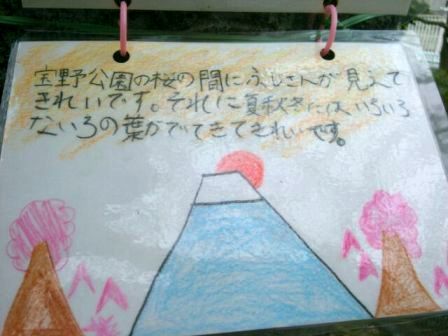 宝野公園の桜の間にふじさんが見えて
きれいです。それに夏秋冬にはいろいろ
ないろの葉がでてきてきれいです。